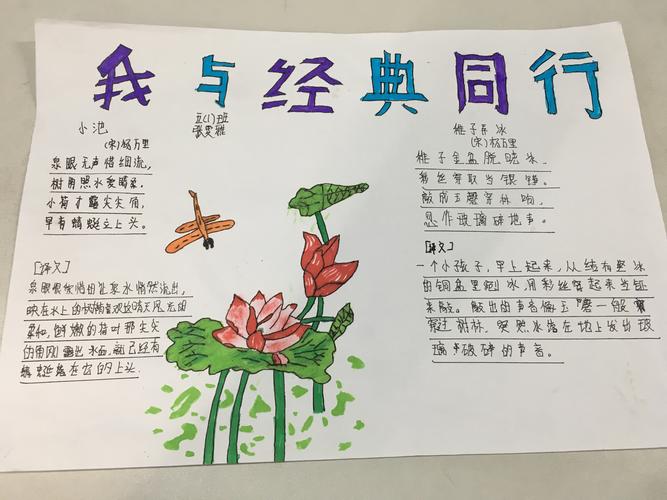 我与经典同行
小池
(宋)杨万里
泉眼无声惜细流,
树阴照水爱晴柔。
小荷才露尖尖角,
早有蜻蜓立上头。
[译文]
泉眼很爱惜地让泉水悄然流出,
映在水上的树荫喜欢这晴天风光的
柔和,鲜嫩的荷叶那尖尖
的角刚露出水面,就已经有
蜻蜓落在它的上头
五(1)班
张雯雅
稚子弄冰
(宋)杨万里
稚子金盆脱晓冰,
彩丝穿取当银钲。
敲成玉磬穿林响,
忽作玻璃碎地声。
[译文]
一个小孩子,早上起来,从结有坚冰
的铜盆里剜冰,用彩丝穿起来当钲
来敲。敲出的声音像玉磬一般穿
过树林,突然冰落在地上发出玻
璃破碎的声音。